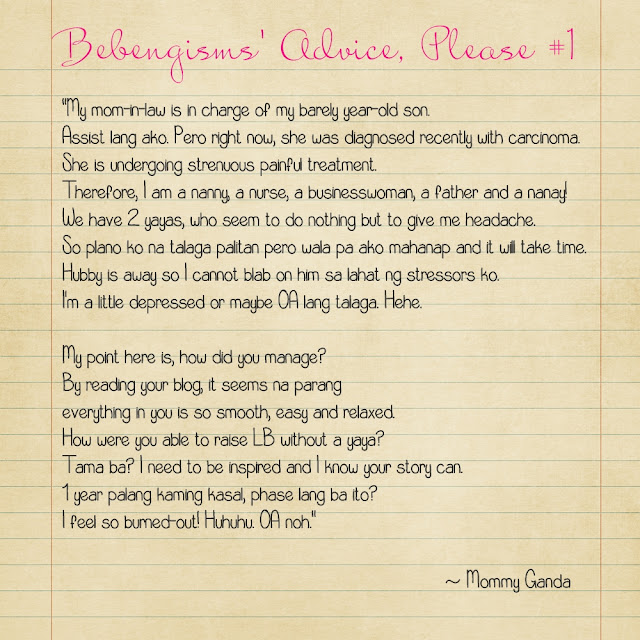 Bebengisms' Advice, Please #1
"My mom-in-law is in charge of my barely year-old son.
Assist lang ako. Pero right now, she was diagnosed recently with carcinoma.
She is undergoing strenuous painful treatment.
Therefore, I am a nanny, a nurse, a businesswoman, a father and a nanay!
We have 2 yayas, who seem to do nothing but to give me headache.
So plano ko na talaga palitan pero wala pa ako mahanap and it will take time.
Hubby is away so I cannot blab on him sa lahat ng stressors ko.
I'm a little depressed or maybe OA lang talaga. Hehe.
My point here is, how did you manage?
By reading your blog, it seems na parang
everything in you is so smooth, easy and relaxed.
How were you able to raise LB without a yaya?
Tama ba? I need to be inspired and I know your story can.
1 year palang kaming kasal, phase lang ba ito?
I feel so burned-out! Huhuhu. OA noh."
~ Mommy Ganda